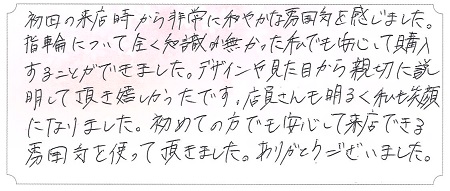 初回の来店時から非常に和やかな雰囲気を感じました。
指輪について全く知識が無かった私でも安心して購入
することができました。デザインや見た目から親切に説
明して頂き嬉しかったです。店員さんも明るく私も笑顔
になりました。初めての方でも安心して来店できる
雰囲気を使って頂きました。ありがとうございました。